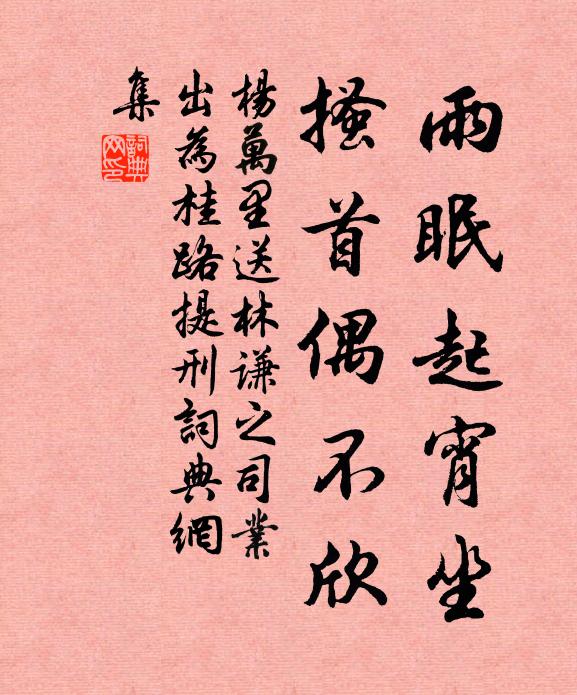 雨眠起宵坐
搔首偶不欣
楊萬里送林謙之司業
出為桂路提刑詞典網
集
詞典網印